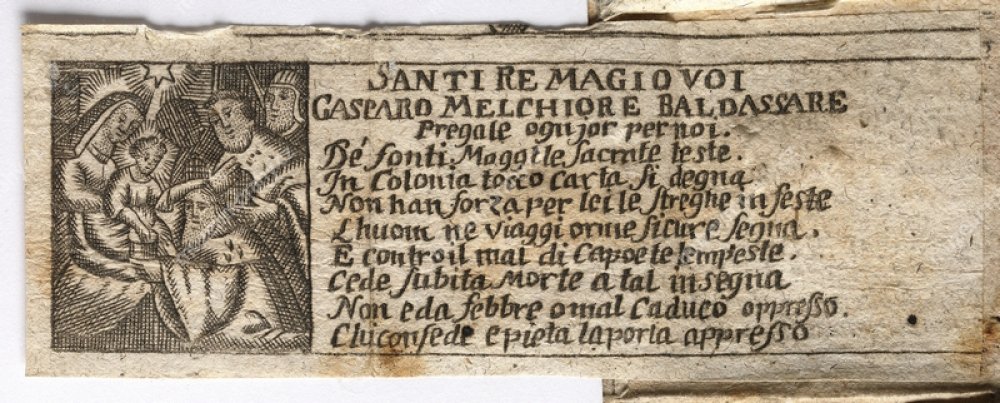 SANTI RE MAGI O VOI
GASPARO MELCHIORE BALDASSARE
Pregate ogujor per noi.
De' sonti Moggi le sacrate teste.
In Colonia tocco carta si degna
Non han forza per lei le streghe infeste
Lhuom ne viaggi orme sicure segna.
E contro il mal di Capo e tempeste.
Cede subita Morte a tal insegna
Non e da febbre o mal Caduco oppresso.
Chi con fede e pieta la porta appresso